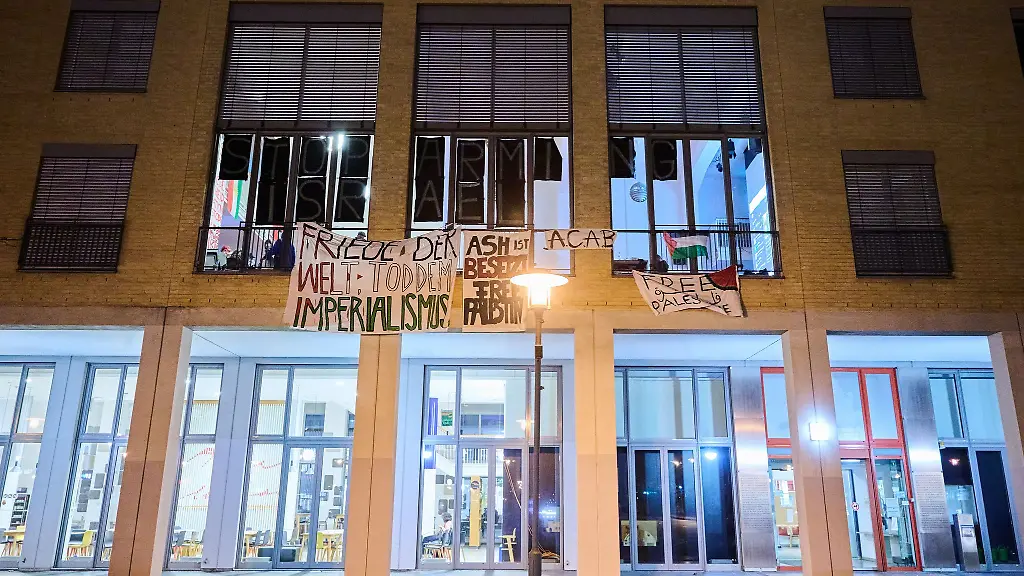 STOP ARMING
ISRAEL
FRIEDE DER
WELT: TOD DEM
IMPERIALISMUS
ASH IST
BESETZT
FREE
PALÄSTINA
ACAB
FREE